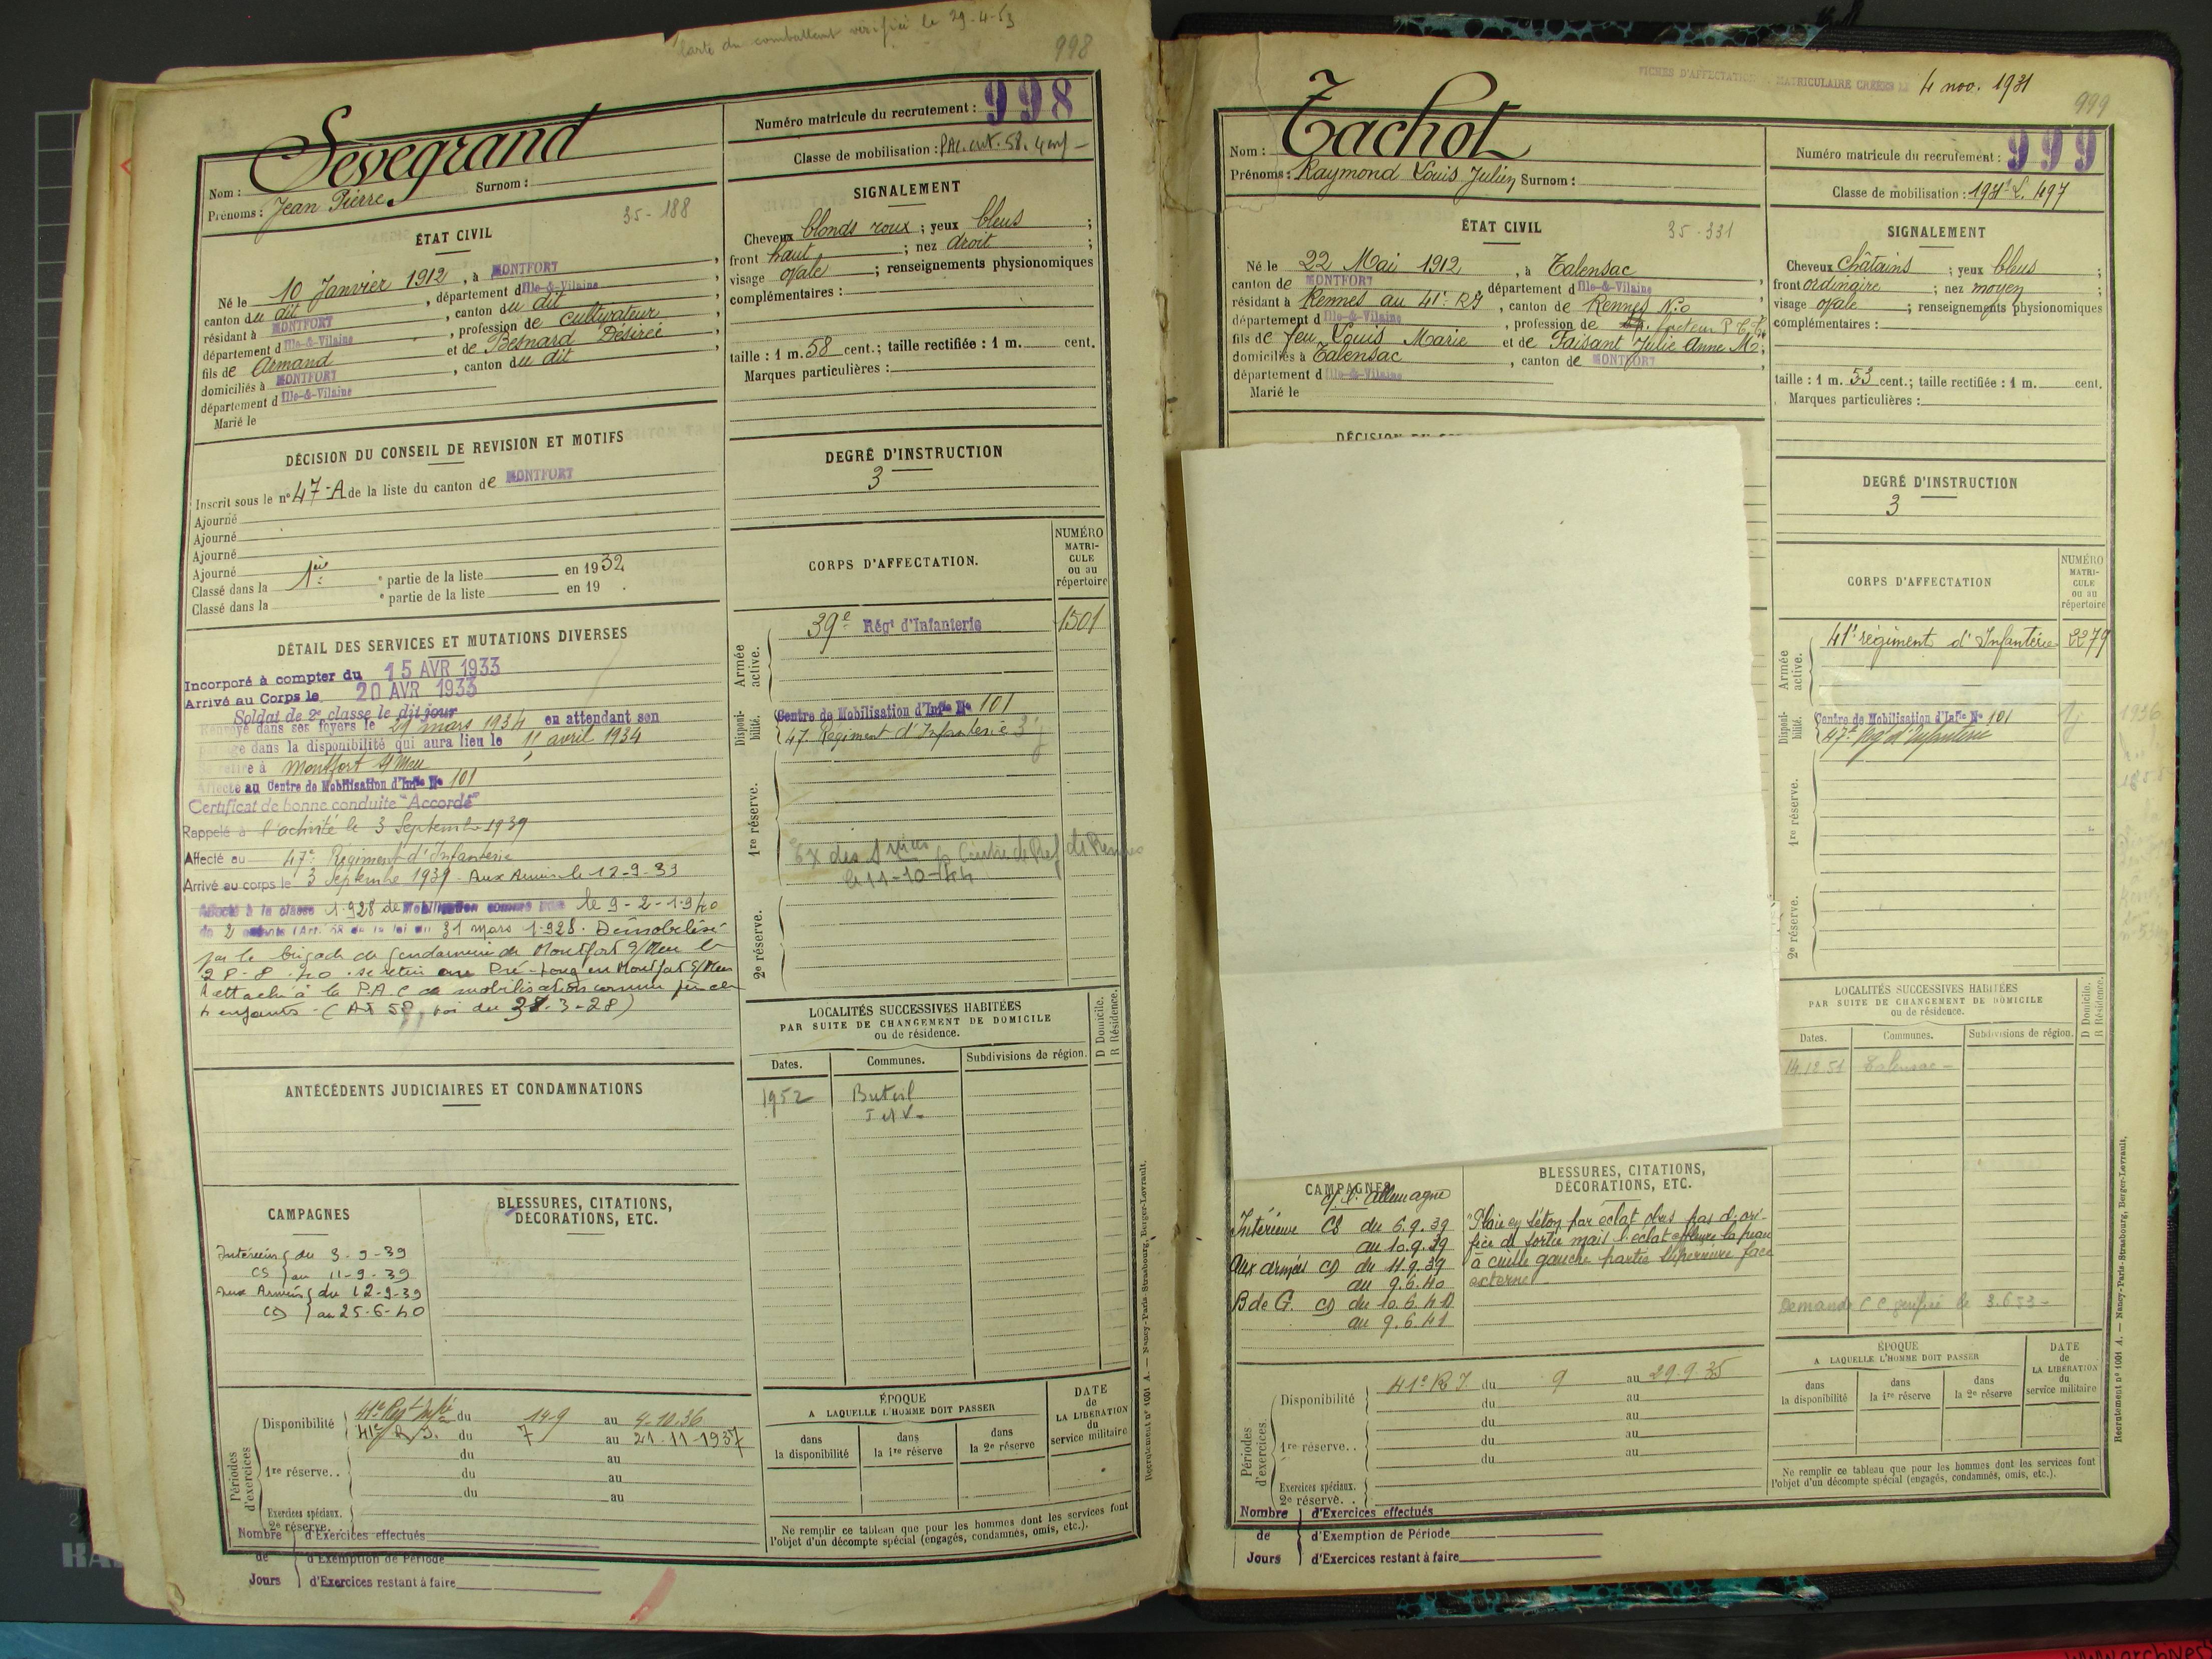 Carte du combattant vérifiée le 29-4-53
998
Nom : Sevegrand
Surnom :
Prénoms : Jean Pierre
35-188
ÉTAT CIVIL
Né le 10 Janvier 1912, à MONTFORT,
canton du dit, département d Ille-&-Vilaine,
résidant à MONTFORT, canton du dit,
département d Ille-&-Vilaine, profession de cultivateur,
fils de Armand et de Besnard Désirée,
domiciliés à MONTFORT, canton du dit
département d Ille-&-Vilaine
Marié le
DÉCISION DU CONSEIL DE REVISION ET MOTIFS
Inscrit sous le n° 47-A de la liste du canton de MONTFORT
Ajourné
Ajourné
Ajourné
Ajourné
Classé dans la 1ère ° partie de la liste en 1932
Classé dans la ° partie de la liste en 19 .
DÉTAIL DES SERVICES ET MUTATIONS DIVERSES
Incorporé à compter du 15 AVR 1933
Arrivé au Corps le 20 AVR 1933
Soldat de 2e classe le dit jour
Renvoyé dans ses foyers le 29 mars 1934 en attendant son
passage dans la disponibilité qui aura lieu le 15 avril 1934
Se retire à Montfort s/ Meu
Affecté au Centre de Mobilisation d'Infie No 101
Certificat de bonne conduite "Accordé"
Rappelé à l'activité le 3 Septembre 1939
Affecté au 47e Régiment d'Infanterie
Arrivé au corps le 3 Septembre 1939 - Aux Armées le 12-9-39
Affecté à la classe 1928 de Mobilisation comme père le 9-2-1940
de 2 enfants (Art. 58 de la loi du 31 mars 1928. Démobilisé
par la brigade de Gendarmerie de Montfort s/Meu le
28-8-40. se retire au Pré-Long en Montfort s/Meu
Rattaché à la P.A.C de mobilisation comme père de
4 enfants - (Art 58, Loi du 31-3-28)
ANTÉCÉDENTS JUDICIAIRES ET CONDAMNATIONS
CAMPAGNES
Intérieur du 3-9-39
CS au 11-9-39
Aux Armées du 12-9-39
CD au 25-6-40
BLESSURES, CITATIONS,
DÉCORATIONS, ETC.
Périodes d'exercices
Disponibilité 41e Regt Infie du 14-9 au 4-10-36
41e R.I. du 7 au 21-11-1937
du au
1re réserve.. du au
du au
Exercices spéciaux.
2e réserve.
Nombre d'Exercices effectués
de d'Exemption de Période
Jours d'Exercices restant à faire
Numéro matricule du recrutement : 998
Classe de mobilisation : PAC. art. 58. 4 enf -
SIGNALEMENT
Cheveux blonds roux ; yeux bleus ;
front haut ; nez droit ;
visage ovale ; renseignements physionomiques
complémentaires :
taille : 1 m. 58 cent. ; taille rectifiée : 1 m. cent.
Marques particulières :
DEGRÉ D'INSTRUCTION
3
CORPS D'AFFECTATION.
NUMÉRO
MATRI-
CULE
ou au
répertoire
Armée active.
39e Régt d'Infanterie 1501
Disponi-bilité.
Centre de Mobilisation d'Infie No 101
47 Régiment d'Infanterie
1re réserve.
le 11-10-44
2e réserve.
LOCALITÉS SUCCESSIVES HABITÉES
PAR SUITE DE CHANGEMENT DE DOMICILE
ou de résidence.
D Domicile.
R Résidence.
Dates. Communes. Subdivisions de région.
1952 Buteil
I et V.
ÉPOQUE
A LAQUELLE L'HOMME DOIT PASSER
dans la disponibilité
dans la 1re réserve
dans la 2e réserve
DATE
de
LA LIBÉRATION
du
service militaire
Ne remplir ce tableau que pour les hommes dont les services font
l'objet d'un décompte spécial (engagés, condamnés, omis, etc.).
Recrutement n° 1001 A. — Nancy-Paris-Strasbourg, Berger-Levrault.
FICHES D'AFFECTATION MATRICULAIRE CRÉÉES LE 4 nov. 1931
999
Nom : Tachot
Prénoms : Raymond Louis Julien Surnom :
ÉTAT CIVIL
35-331
Né le 22 Mai 1912, à Talensac
canton de MONTFORT, département d Ille-&-Vilaine,
résidant à Rennes au 41e RI, canton de Rennes N.O
département d Ille-&-Vilaine, profession de facteur P.T.T.
fils de feu Louis Marie et de Faisant Julie Anne Me,
domiciliés à Talensac, canton de MONTFORT,
département d Ille-&-Vilaine
Marié le
CAMPAGNES
c/ l'Allemagne
Intérieure CS du 6.9.39
au 10.9.39
Aux armées CD du 11.9.39
au 9.6.40
B de G. CD du 10.6.40
au 9.6.41
BLESSURES, CITATIONS,
DÉCORATIONS, ETC.
"Plaie en séton par éclat obus pas d'ori-
fice de sortie mais l'éclat effleure la peau
à cuisse gauche partie supérieure face
externe
Périodes d'exercices.
Disponibilité 41e R I. du 9 au 29.9.35
du au
du au
1re réserve.. du au
du au
Exercices spéciaux.
2e réserve. .
Nombre d'Exercices effectués
de d'Exemption de Période
Jours d'Exercices restant à faire
Numéro matricule du recrutement : 999
Classe de mobilisation :
SIGNALEMENT
Cheveux châtains ; yeux bleus ;
front ordinaire ; nez moyen ;
visage ovale ; renseignements physionomiques
complémentaires :
taille : 1 m. 53 cent. ; taille rectifiée : 1 m. cent.
Marques particulières :
DEGRÉ D'INSTRUCTION
3
CORPS D'AFFECTATION
NUMÉRO
MATRI-
CULE
ou au
répertoire
Armée active.
41e régiment d'Infanterie 2279
Disponi-bilité.
Centre de Mobilisation d'Infie No 101
47e Régt d'Infanterie
1re réserve.
2e réserve.
LOCALITÉS SUCCESSIVES HABITÉES
PAR SUITE DE CHANGEMENT DE DOMICILE
ou de résidence.
D Domicile.
R Résidence.
Dates. Communes. Subdivisions de région.
14.12.51 Talensac -
Demande C C vérifiée le 3.6.53 -
ÉPOQUE
A LAQUELLE L'HOMME DOIT PASSER
dans la disponibilité
dans la 1re réserve
dans la 2e réserve
DATE
de
LA LIBÉRATION
du
service militaire
Ne remplir ce tableau que pour les hommes dont les services font
l'objet d'un décompte spécial (engagés, condamnés, omis, etc.).
Recrutement n° 1001 A. — Nancy-Paris-Strasbourg, Berger-Levrault.